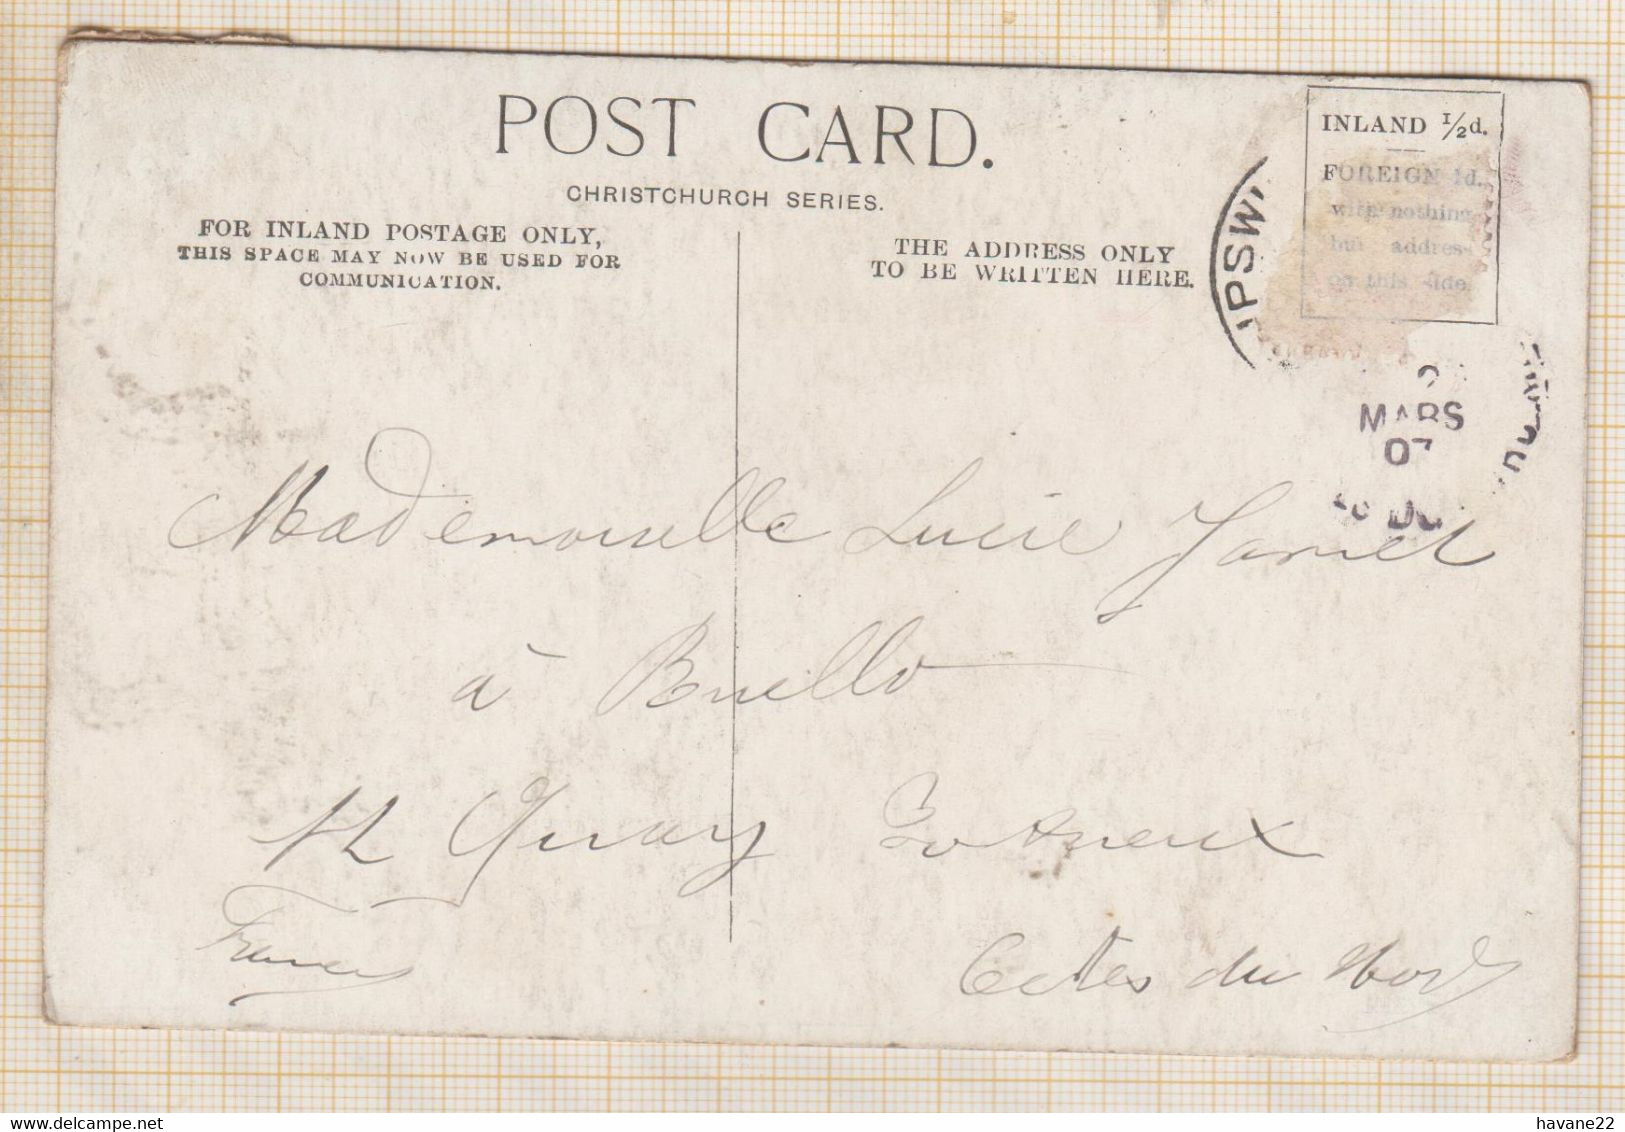 POST CARD.
CHRISTCHURCH SERIES.
FOR INLAND POSTAGE ONLY,
THIS SPACE MAY NOW BE USED FOR
COMMUNICATION.
THE ADDRESS ONLY
TO BE WRITTEN HERE.
INLAND ½d.
FOREIGN 1d.
with nothing
but address
on this side.
IPSW
MARS
07
Mademoiselle Lucie
à
Quay
France
Cotes du Nord
havane22